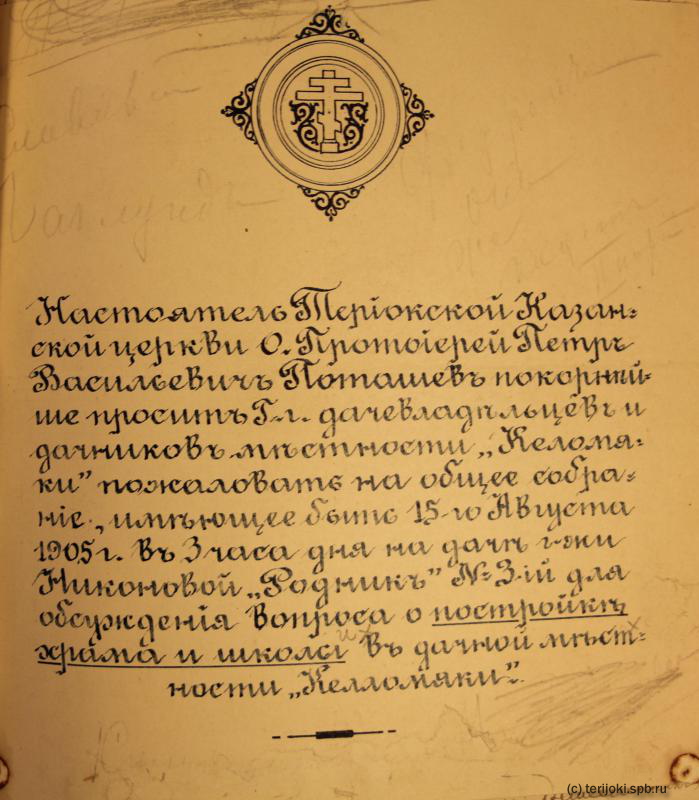 Настоятель Теріокской Казан-
ской церкви О. Протоіерей Петръ
Васильевичъ Поташевъ покорнѣй-
ше проситъ Гг. дачевладѣльцевъ и
дачниковъ мѣстности „Келомя-
ки” пожаловать на общее собра-
ніе, имѣющее быть 15-го Августа
1905 г. въ 3 часа дня на дачѣ г-жи
Никоновой „Родникъ” № 3-ій для
обсужденія вопроса о постройкѣ
храма и школы въ дачной мѣст-
ности „Келломяки”.
(c) terijoki.spb.ru